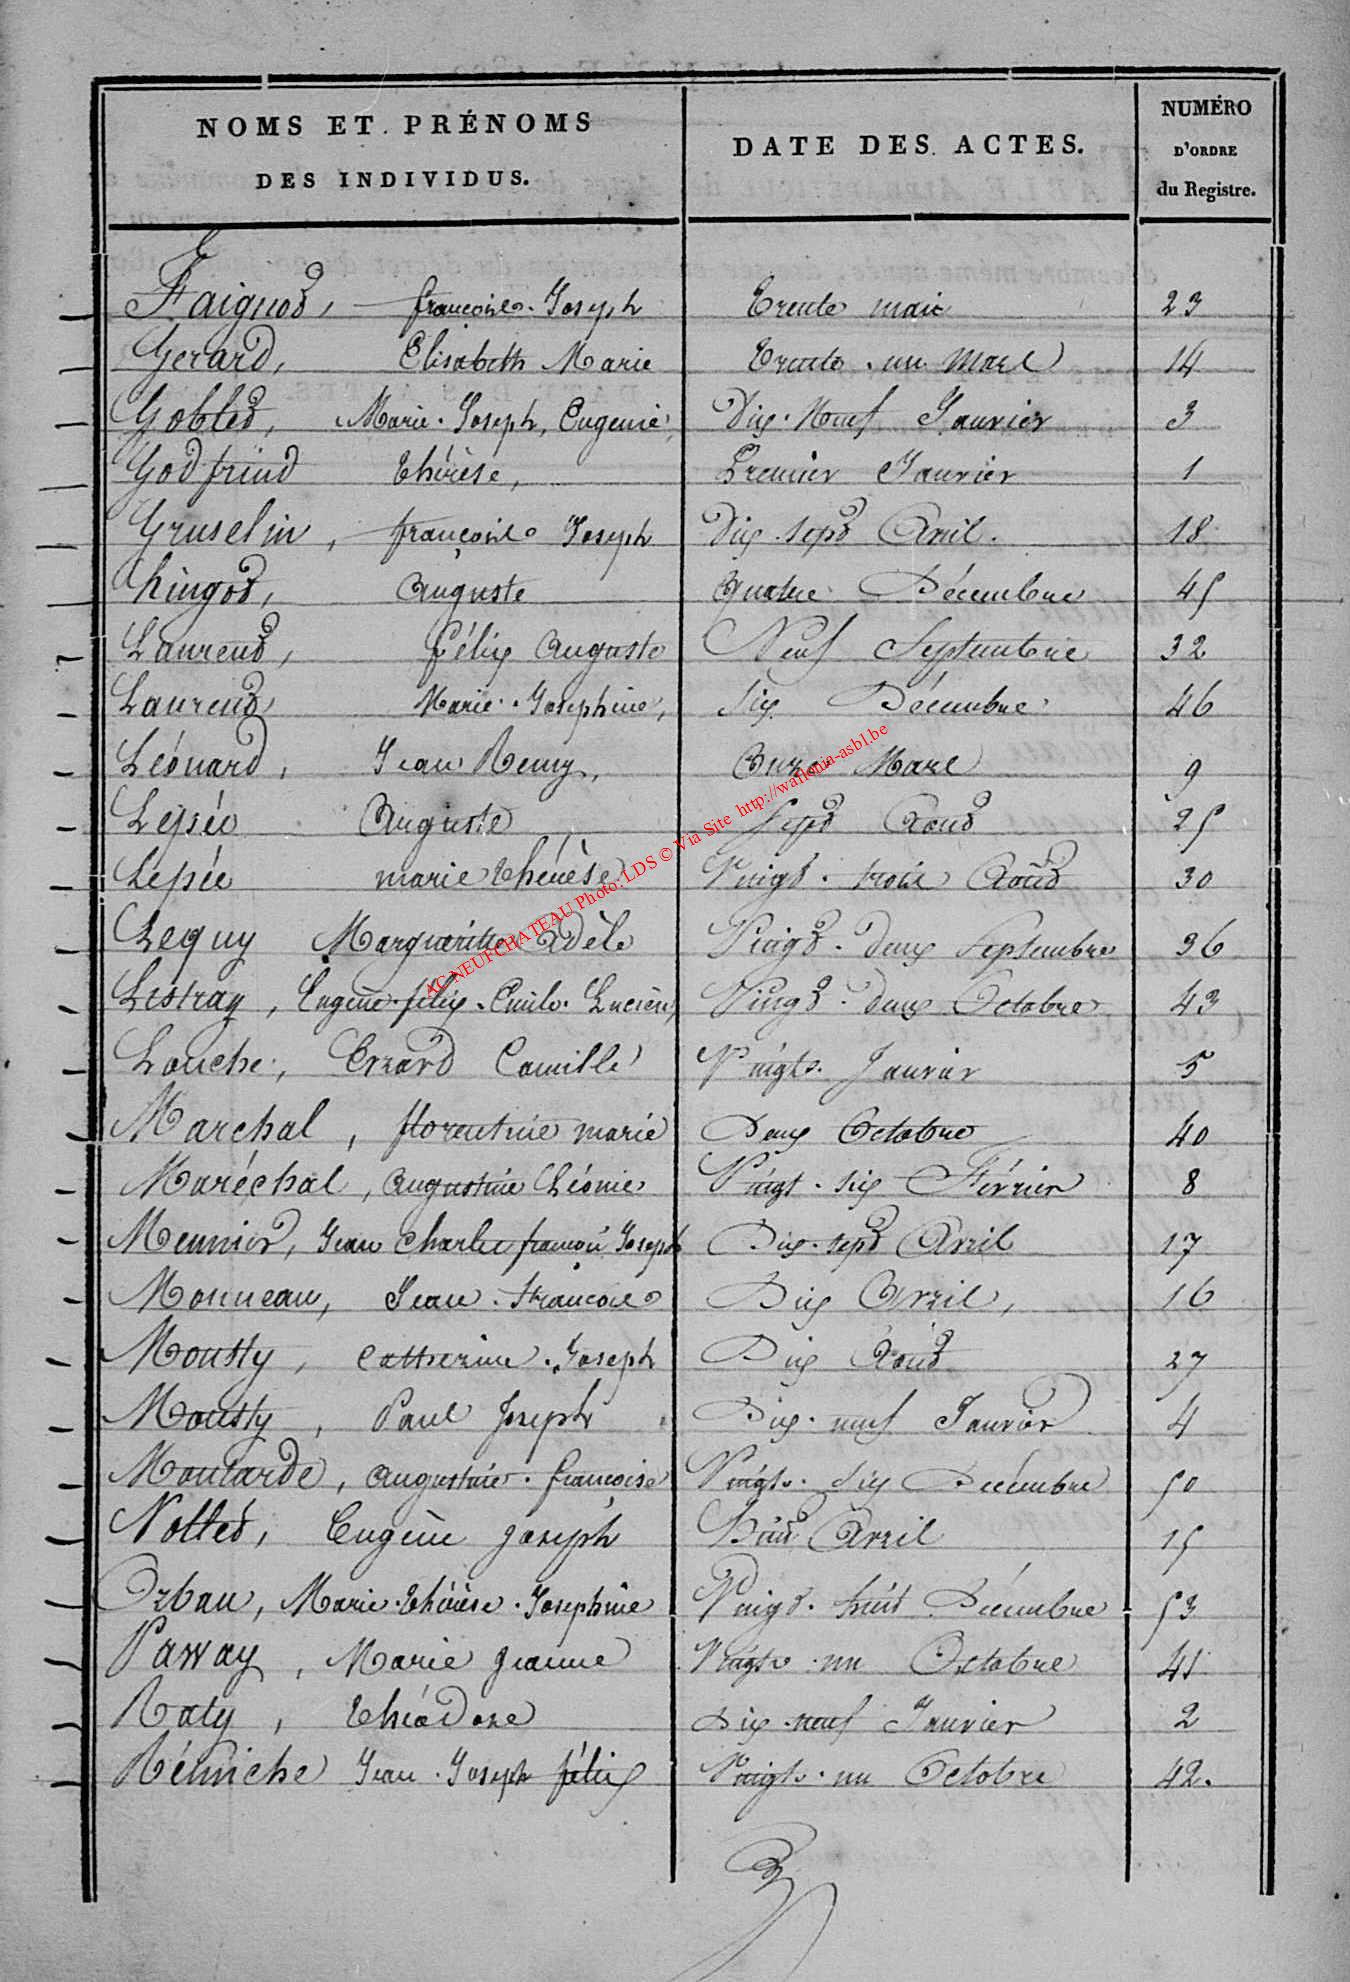 NOMS ET PRÉNOMS
DES INDIVIDUS.
DATE DES ACTES.
NUMÉRO
D'ORDRE
du Registre.
Faignot, françoise Joseph Trente mai 23
Gerard, Elisabeth Marie Trente un Mars 14
Goblet, Marie Joseph, Eugenie Dix Neuf Janvier 3
Godfrind Thérèse, Premier Janvier 1
Gruselin, françoise Joseph Dix sept Avril. 18
hingot, Auguste Quatre Décembre 45
Laurent, félix Auguste Neuf Septembre 32
Laurent Marie Josephine, Six Décembre 46
Léonard, Jean Remy, Onze Mars 9
Lepée Auguste Sept Aout 25
Lepée marie thérèse Vingt trois Août 30
Lequy Marguerite Adèle Vingt deux Septembre 36
Lestray, Eugène félix Emile Lucien, Vingt deux Octobre 43
Louche, Erard Camille Vingt Janvier 5
Marchal, florentine marie Deux Octobre 40
Maréchal, Augustine Léonie Vingt six Février 8
Meunier, Jean Charles françois Joseph Dix sept Avril 17
Monneau, Jean françois Dix Avril, 16
Mousty, Catherine Joseph Dix Aout 27
Mousty, Paul Joseph Dix neuf Janvier 4
Moutarde, Augustine françoise Vingt six Décembre 50
Nollet, Eugène Joseph Huit Avril 15
Orban, Marie Thérèse Josephine Vingt huit Décembre 53
Paway, Marie jeanne Vingt un Octobre 41
Raty, théodore Dix neuf Janvier 2
Réniche Jean Joseph félix Vingt un Octobre 42.
AC NEUFCHATEAU Photo: LDS © Via Site http://wallonia-asbl.be